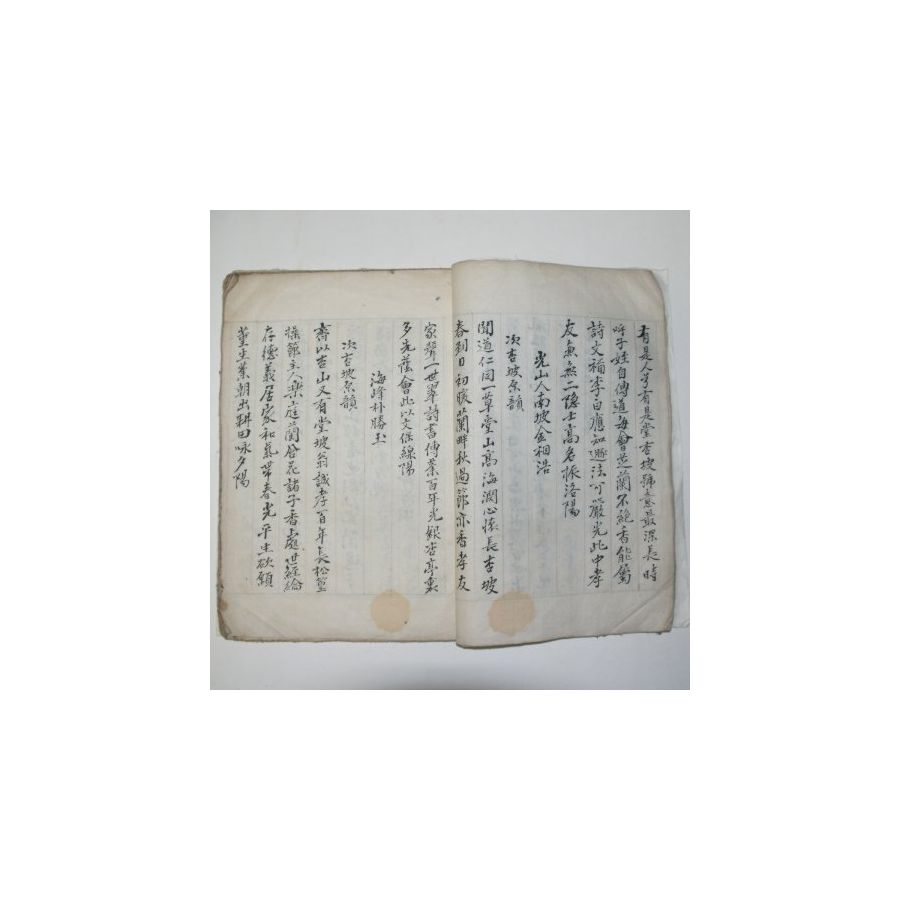 有是人兮有是堂杏坡號意最深長時
呼子姪自傳道每會芝蘭不絕香能屬
詩文稱李白應知 法可嚴光此中孝
友無無二隱士高名振洛陽
光山人南坡金相浩
次杏坡原韻
聞道仁同一草堂山高海濶心懷長杏坡
春到日初暖蘭畔秋過節亦香孝友
家聲一世翠詩書傳業百年光銀杏亭裏
多先蔭會比以文保線陽
海峰朴勝玉
次杏坡原韻
齋以杏山又有堂坡翁誠孝百年長松篁
操節主人樂庭蘭合花諸子香處世經綸
存德義居家和氣帶春光平生欲願
蓳 業朝出耕田咏夕陽